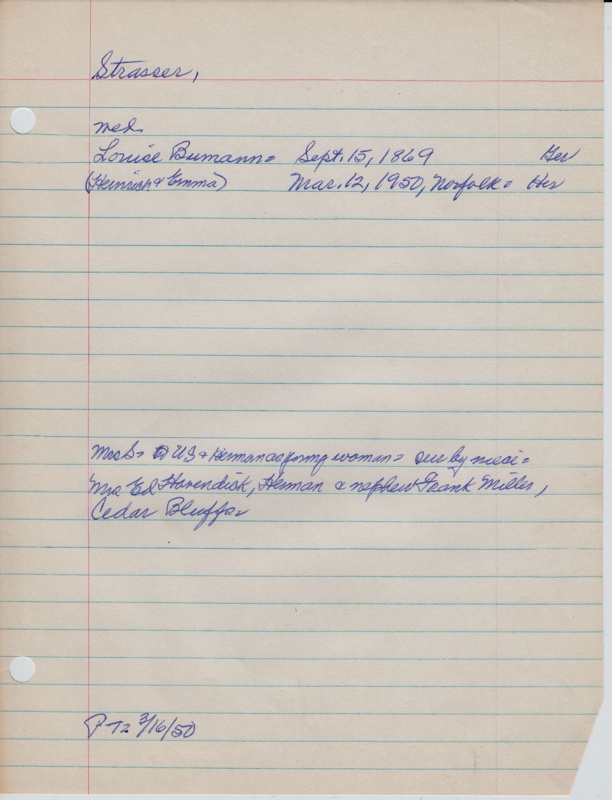 Strasser,
md.
Louise Bumann- Sept. 15, 1869 Ger
(Heinrich & Emma) Mar. 12, 1950, Norfolk- Her
Mrs S- US & Herman as young woman- sur by niece-
Mrs Ed Havendick, Herman & nephew Frank Miller,
Cedar Bluffs-
P-T2 3/16/50